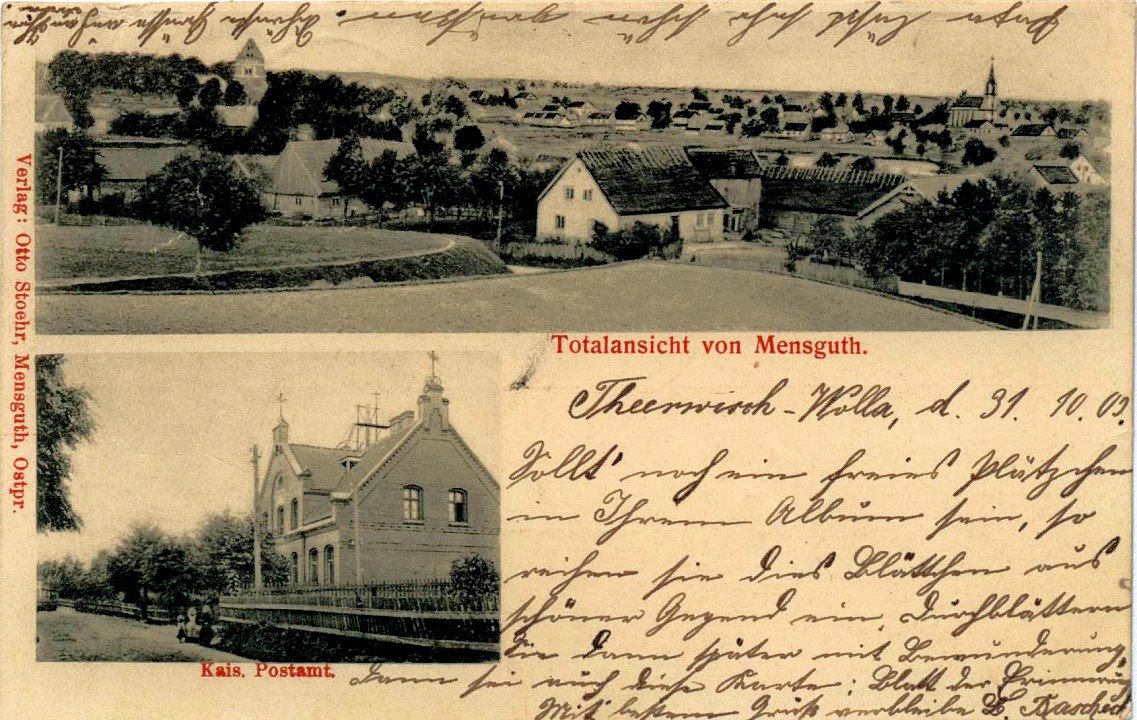 Verlag: Otto Stoehr, Mensguth, Ostpr.
Totalansicht von Mensguth.
Kais. Postamt.
Theerwisch-Wolla, d. 31. 10. 03.
Sollt' noch ein freies Plätzchen
in Ihrem Album sein, so
reihen sie dies Blättchen aus
schöner Gegend ein, Durchblättern
Sie dann später mit Bewunderung,
Dann sei auch diese Karte: Blatt der Erinnerung
Mit bestem Gruß verbleibe